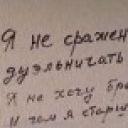 Я не сражен
дуэльничать
Я не хочу бра
И чем я старш